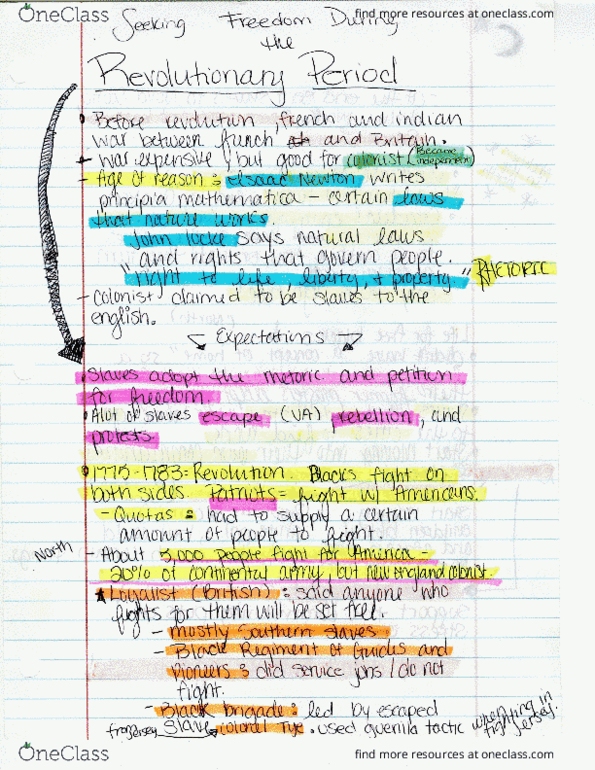 OneClass
find more resources at oneclass.com
Seeking Freedom During
the
Revolutionary Period
• Before revolution, french and indian
war between french and Britain.
- War expensive, but good for colonist (Became independent)
- Age of reason: Isaac Newton writes
principia mathematica - certain laws
that nature works.
John locke says natural laws
and rights that govern people.
"right to life, liberty, & property." RHETORIC
- Colonist claimed to be slaves to the
english.
Expectations
• Slaves adopt the rhetoric and petition
for freedom.
• Alot of slaves escape (VA) rebellion, and
protests.
• 1775-1783 = Revolution. Blacks fight on
both sides. Patriots = fight w/ Americans.
- Quotas = had to supply a certain
amount of people to fight.
North
- About 5,000 people fight for America -
20% of continental army, but new england colonist.
Loyalist (British) : said anyone who
fights for them will be set free.
- mostly Southern slaves
- Black Regiment of Guides and
Pioneers : did service jobs / do not
fight.
- Black brigade : led by escaped
from Jersey slave, colonel Tye. used guerilla tactic when fighting in Jersey.
OneClass
find more resources at oneclass.com